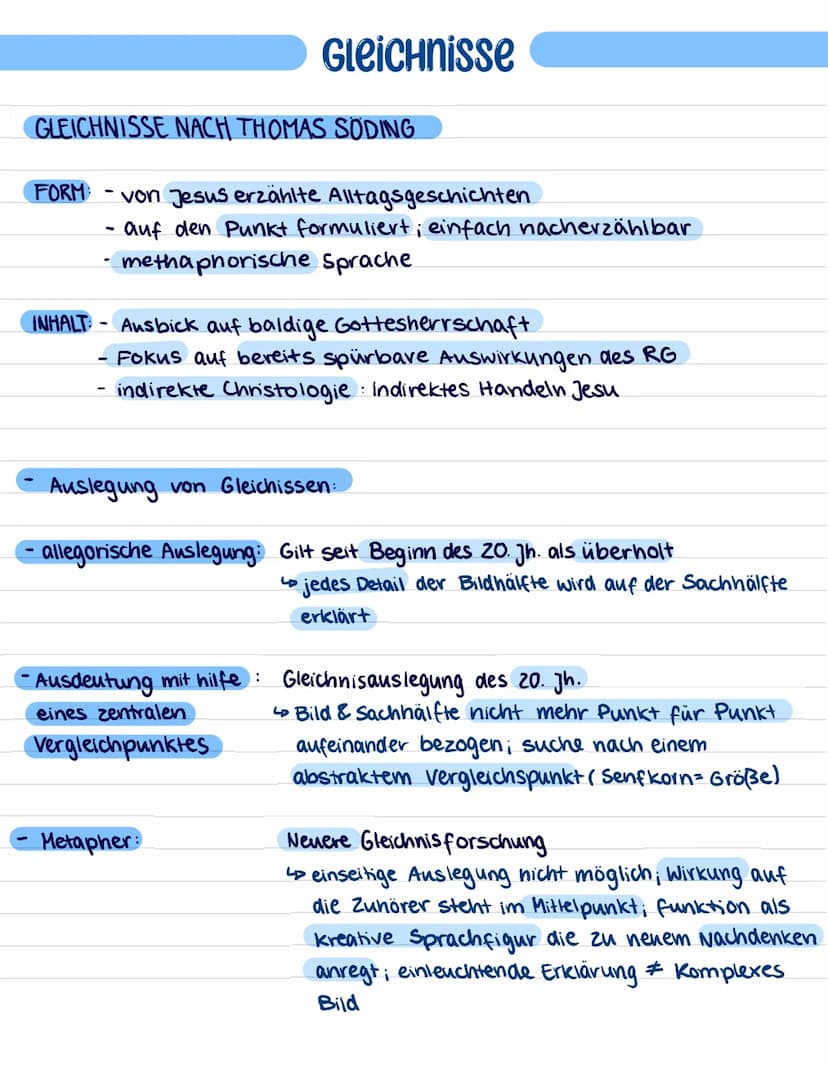 GLEICHNISSE
GLEICHNISSE NACH THOMAS SÖDING
FORM: - von Jesus erzählte Alltagsgeschichten
- auf den Punkt formuliert; einfach nacherzählbar
- methaphorische Sprache
INHALT: - Ausbick auf baldige Gottesherrschaft
- Fokus auf bereits spürbare Auswirkungen des RG
- indirekte Christologie: Indirektes Handeln Jesu
- Auslegung von Gleichissen:
- allegorische Auslegung: Gilt seit Beginn des 20. Jh. als überholt
↳ jedes Detail der Bildhälfte wird auf der Sachhälfte
erklärt
- Ausdeutung mit hilfe : Gleichnisauslegung des 20. Jh.
eines zentralen ↳ Bild & Sachhälfte nicht mehr Punkt für Punkt
Vergleichpunktes aufeinander bezogen; suche nach einem
abstraktem Vergleichspunkt (Senfkorn= Größe)
- Metapher: Neuere Gleichnisforschung
↳ einseitige Auslegung nicht möglich; Wirkung auf
die Zuhörer steht im Mittelpunkt; funktion als
kreative Sprachfigur die zu neuem Nachdenken
anregt; einleuchtende Erklärung ≠ Komplexes
Bild